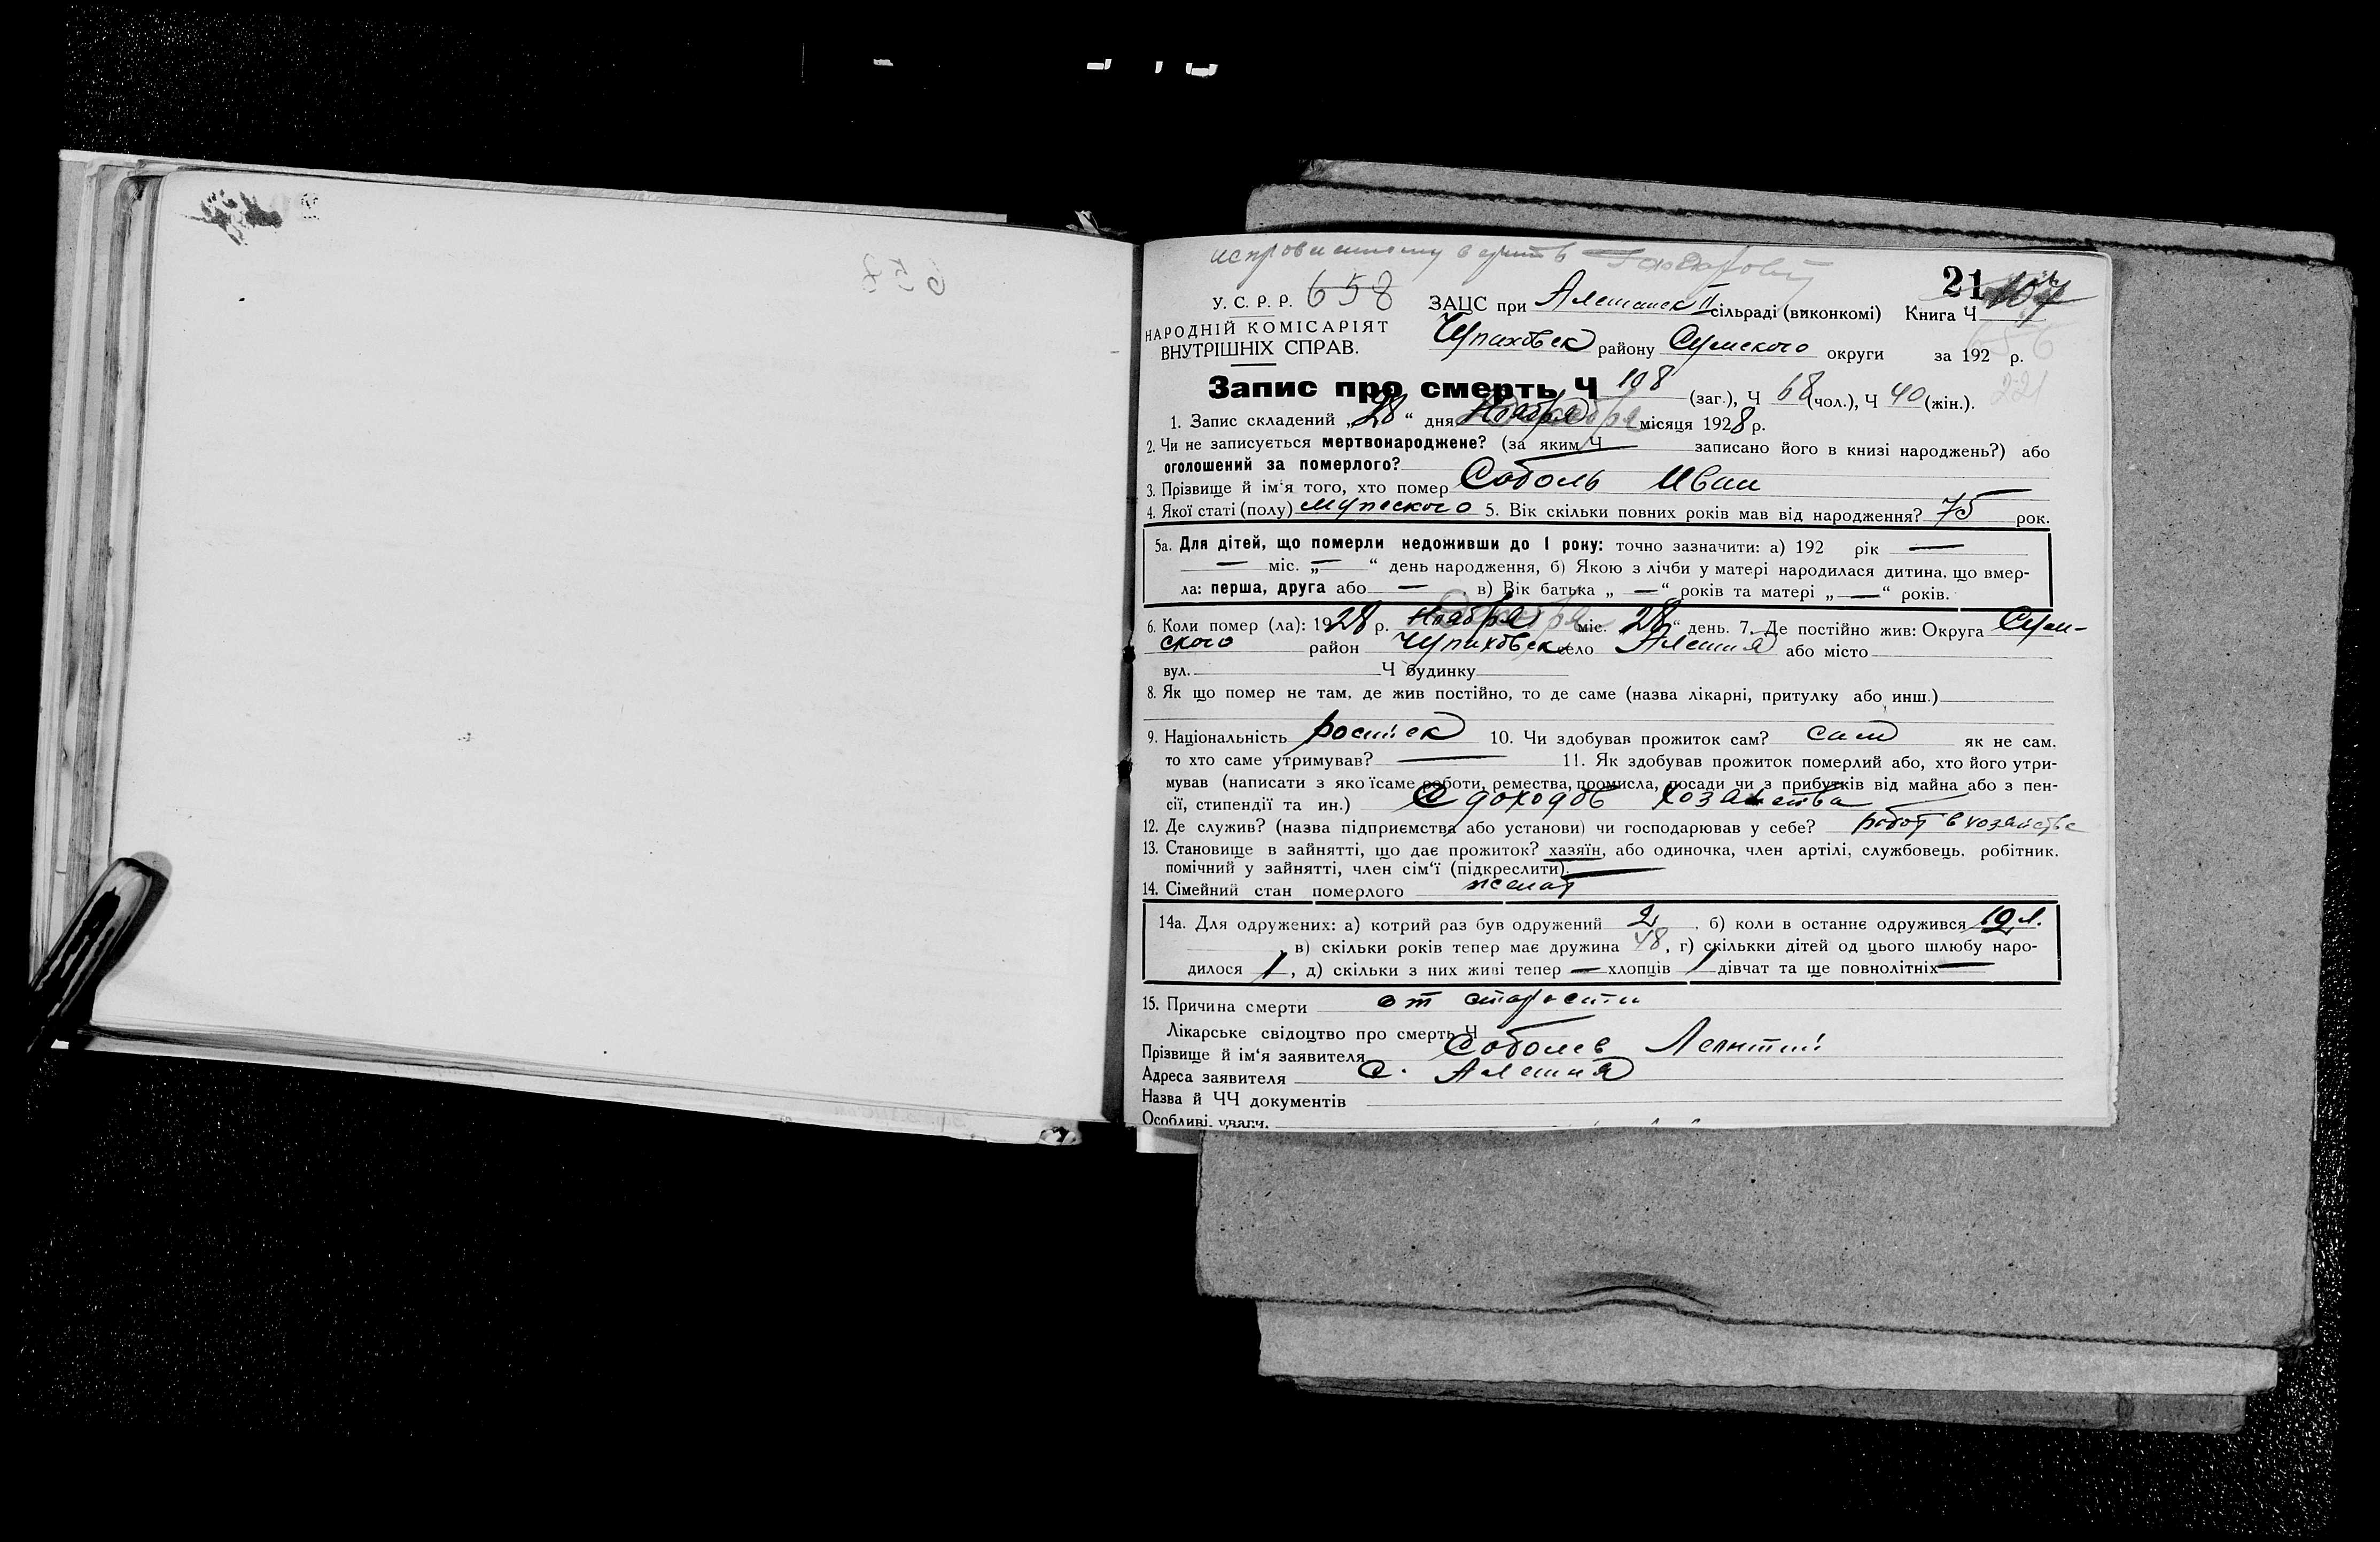 исправленному верить
У. С. Р. Р. 658
НАРОДНІЙ КОМІСАРІЯТ
ВНУТРІШНІХ СПРАВ.
21
ЗАЦС при Алешанск II сільраді (виконкомі) Книга Ч 107
Чупаховск району Сумского округи за 192 р.
656
221
Запис про смерть Ч 108 (заг.), Ч 68 (чол.), Ч 40 (жін.).
1. Запис складений „28“ дня Ноября Декабря місяця 1928 р.
2. Чи не записується мертвонароджене? (за яким Ч записано його в книзі народжень?) або
оголошений за померлого?
3. Прізвище й ім'я того, хто помер Соболь Иван
4. Якої статі (полу) мужского 5. Вік скільки повних років мав від народження? 75 рок.
5а. Для дітей, що померли недоживши до 1 року: точно зазначити: а) 192 рік —
— міс. „—“ день народження, б) Якою з лічби у матері народилася дитина, що вмер-
ла: перша, друга або — в) Вік батька „—“ років та матері „—“ років.
6. Коли помер (ла): 1928 р. Ноября Декабря міс. 28“ день. 7. Де постійно жив: Округа Сум-
ского район Чупаховск село Алешня або місто
вул. Ч будинку
8. Як що помер не там, де жив постійно, то де саме (назва лікарні, притулку або инш.)
9. Національність 10. Чи здобував прожиток сам? сам як не сам,
то хто саме утримував? — 11. Як здобував прожиток померлий або, хто його утри-
мував (написати з якоїсаме роботи, ремества, промисла, посади чи з прибутків від майна або з пен-
сії, стипендії та ин.) С доходов хозайства
12. Де служив? (назва підприємства або установи) чи господарював у себе? работ в хозяйстве
13. Становище в зайнятті, що дає прожиток? хазяїн, або одиночка, член артілі, службовець, робітник,
помічний у зайнятті, член сім'ї (підкреслити).
14. Сімейний стан померлого женат
14а. Для одружених: а) котрий раз був одружений 2, б) коли в останнє одружився 19 л.
, в) скільки років тепер має дружина 48, г) скількки дітей од цього шлюбу наро-
дилося 1, д) скільки з них живі тепер — хлопців 1 дівчат та ще повнолітніх —
15. Причина смерти от старости
Лікарське свідоцтво про смерть Ч
Прізвище й ім'я заявителя Соболев
Адреса заявителя С. Алешня
Назва й ЧЧ документів
Особливі уваги.